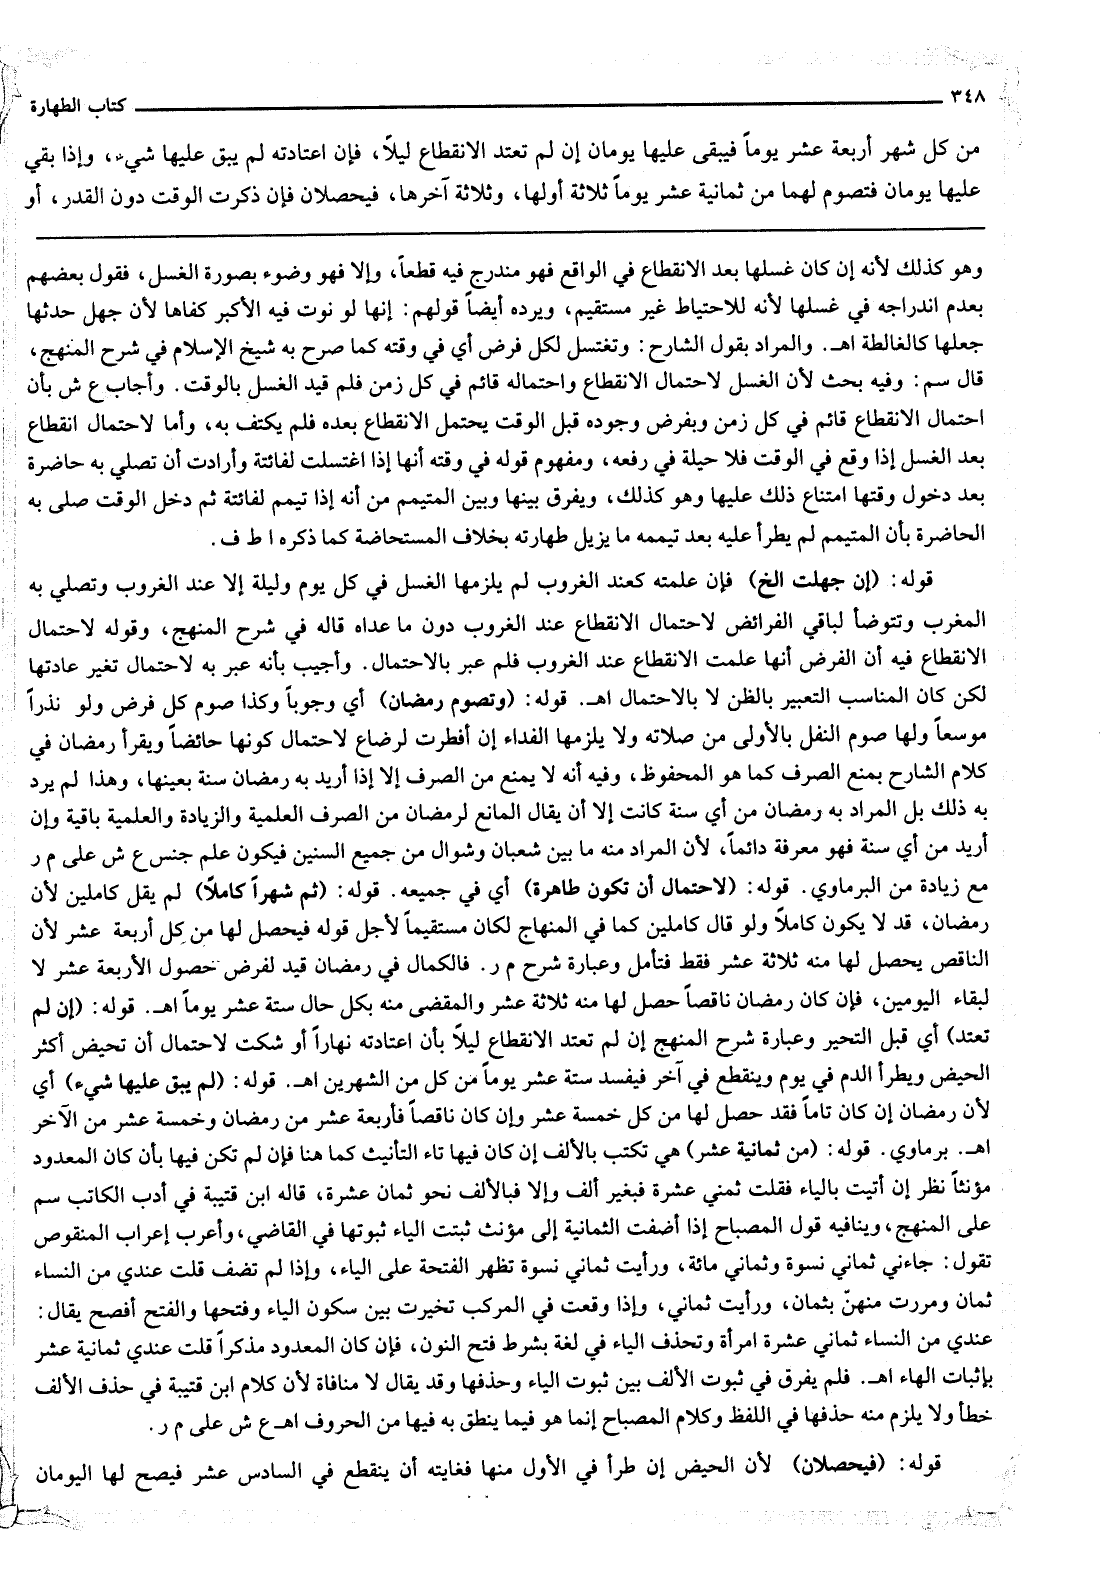 ٣٤٨ كتاب الطهارة
من كل شهر أربعة عشر يوماً فيبقى عليها يومان إن لم تعتد الانقطاع ليلاً، فإن اعتادته لم يبق عليها شيء، وإذا بقي
عليها يومان فتصوم لهما من ثمانية عشر يوماً ثلاثة أولها، وثلاثة آخرها، فيحصلان فإن ذكرت الوقت دون القدر، أو
وهو كذلك لأنه إن كان غسلها بعد الانقطاع في الواقع فهو مندرج فيه قطعاً، وإلا فهو وضوء بصورة الغسل، فقول بعضهم
بعدم اندراجه في غسلها لأنه للاحتياط غير مستقيم، ويرده أيضاً قولهم: إنها لو نوت فيه الأكبر كفاها لأن جهل حدثها
جعلها كالغالطة اهـ. والمراد بقول الشارح: وتغتسل لكل فرض أي في وقته كما صرح به شيخ الإسلام في شرح المنهج،
قال سم: وفيه بحث لأن الغسل لاحتمال الانقطاع واحتماله قائم في كل زمن فلم قيد الغسل بالوقت. وأجاب ع ش بأن
احتمال الانقطاع قائم في كل زمن وبفرض وجوده قبل الوقت يحتمل الانقطاع بعده فلم يكتف به، وأما لاحتمال انقطاع
بعد الغسل إذا وقع في الوقت فلا حيلة في رفعه، ومفهوم قوله في وقته أنها إذا اغتسلت لفائتة وأرادت أن تصلي به حاضرة
بعد دخول وقتها امتناع ذلك عليها وهو كذلك، ويفرق بينها وبين المتيمم من أنه إذا تيمم لفائتة ثم دخل الوقت صلى به
الحاضرة بأن المتيمم لم يطرأ عليه بعد تيممه ما يزيل طهارته بخلاف المستحاضة كما ذكره ا ط ف.
قوله: (إن جهلت الخ) فإن علمته كعند الغروب لم يلزمها الغسل في كل يوم وليلة إلا عند الغروب وتصلي به
المغرب وتتوضأ لباقي الفرائض لاحتمال الانقطاع عند الغروب دون ما عداه قاله في شرح المنهج، وقوله لاحتمال
الانقطاع فيه أن الفرض أنها علمت الانقطاع عند الغروب فلم عبر بالاحتمال. وأجيب بأنه عبر به لاحتمال تغير عادتها
لكن كان المناسب التعبير بالظن لا بالاحتمال اهـ. قوله: (وتصوم رمضان) أي وجوباً وكذا صوم كل فرض ولو نذراً
موسعاً ولها صوم النفل بالأولى من صلاته ولا يلزمها الفداء إن أفطرت لرضاع لاحتمال كونها حائضاً ويقرأ رمضان في
كلام الشارح بمنع الصرف كما هو المحفوظ، وفيه أنه لا يمنع من الصرف إلا إذا أريد به رمضان سنة بعينها، وهذا لم يرد
به ذلك بل المراد به رمضان من أي سنة كانت إلا أن يقال المانع لرمضان من الصرف العلمية والزيادة والعلمية باقية وإن
أريد من أي سنة فهو معرفة دائماً، لأن المراد منه ما بين شعبان وشوال من جميع السنين فيكون علم جنس ع ش على م ر
مع زيادة من البرماوي. قوله: (لاحتمال أن تكون طاهرة) أي في جميعه. قوله: (ثم شهراً كاملاً) لم يقل كاملين لأن
رمضان، قد لا يكون كاملاً ولو قال كاملين كما في المنهاج لكان مستقيماً لأجل قوله فيحصل لها من كل أربعة عشر لأن
الناقص يحصل لها منه ثلاثة عشر فقط فتأمل وعبارة شرح م ر. فالكمال في رمضان قيد لفرض حصول الأربعة عشر لا
لبقاء اليومين، فإن كان رمضان ناقصاً حصل لها منه ثلاثة عشر والمقضى منه بكل حال ستة عشر يوماً اهـ. قوله: (إن لم
تعتد) أي قبل التحير وعبارة شرح المنهج إن لم تعتد الانقطاع ليلاً بأن اعتادته نهاراً أو شكت لاحتمال أن تحيض أكثر
الحيض ويطرأ الدم في يوم وينقطع في آخر فيفسد ستة عشر يوماً من كل من الشهرين اهـ. قوله: (لم يبق عليها شيء) أي
لأن رمضان إن كان تاماً فقد حصل لها من كل خمسة عشر وإن كان ناقصاً فأربعة عشر من رمضان وخمسة عشر من الآخر
اهـ. برماوي. قوله: (من ثمانية عشر) هي تكتب بالألف إن كان فيها تاء التأنيث كما هنا فإن لم تكن فيها بأن كان المعدود
مؤنثاً نظر إن أتيت بالياء فقلت ثمني عشرة فبغير ألف وإلا فبالألف نحو ثمان عشرة، قاله ابن قتيبة في أدب الكاتب سم
على المنهج، وينافيه قول المصباح إذا أضفت الثمانية إلى مؤنث ثبتت الياء ثبوتها في القاضي، وأعرب إعراب المنقوص
تقول: جاءني ثماني نسوة وثماني مائة، ورأيت ثماني نسوة تظهر الفتحة على الياء، وإذا لم تضف قلت عندي من النساء
ثمان ومررت منهنّ بثمان، ورأيت ثماني، وإذا وقعت في المركب تخيرت بين سكون الياء وفتحها والفتح أفصح يقال:
عندي من النساء ثماني عشرة امرأة وتحذف الياء في لغة بشرط فتح النون، فإن كان المعدود مذكراً قلت عندي ثمانية عشر
بإثبات الهاء اهـ. فلم يفرق في ثبوت الألف بين ثبوت الياء وحذفها وقد يقال لا منافاة لأن كلام ابن قتيبة في حذف الألف
خطأ ولا يلزم منه حذفها في اللفظ وكلام المصباح إنما هو فيما ينطق به فيها من الحروف اهـ ع ش على م ر.
قوله: (فيحصلان) لأن الحيض إن طرأ في الأول منها فغايته أن ينقطع في السادس عشر فيصح لها اليومان